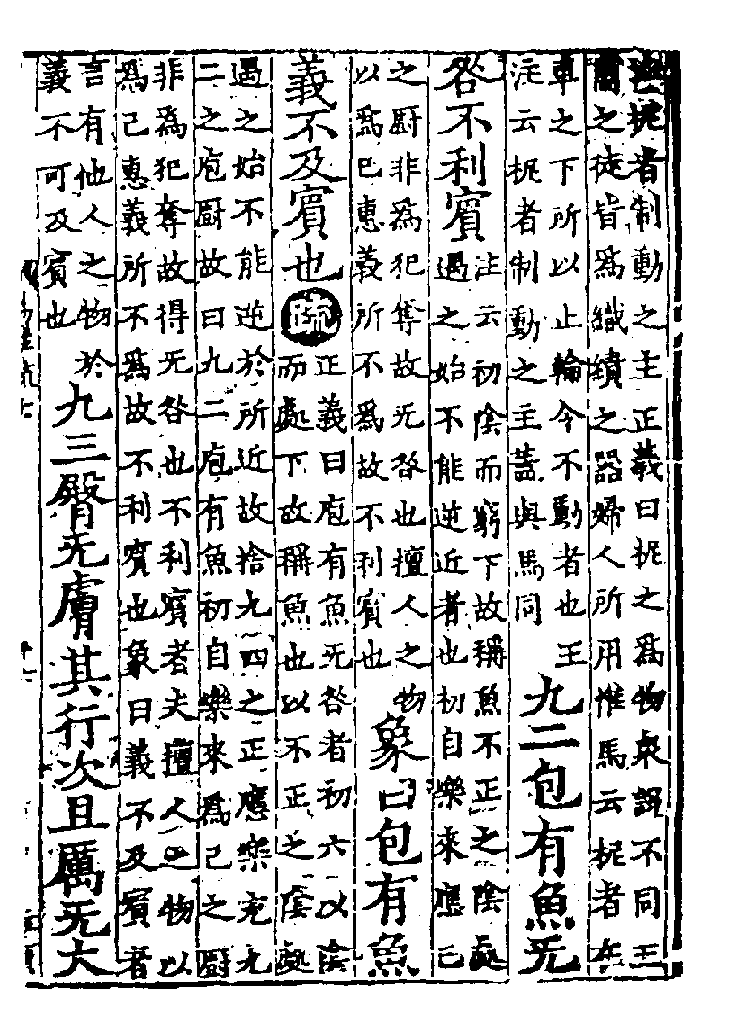 柅者制動之主正義曰柅之為物衆說不同王
肅之徒皆為織績之器婦人所用惟馬云柅者在
車之下所以止輪令不動者也王
注云柅者制動之主蓋與馬同
九二包有魚无
咎不利賓
注云初陰而窮下故稱魚不正之陰處
遇之始不能逆近者也初自樂來應己
之厨非為犯奪故无咎也擅人之物
以為己惠義所不為故不利賓也
象曰包有魚
義不及賓也
疏
正義曰庖有魚无咎者初六以陰
而處下故稱魚也以不正之陰處
遇之始不能逆於所近故捨九四之正應樂充九
二之庖厨故曰九二庖有魚初自樂來為己之厨
非為犯奪故得无咎也不利賓者夫擅人之物以
為己惠義所不為故不利賓也象曰義不及賓者
言有他人之物於
義不可及賓也
九三臀无膚其行次且厲无大